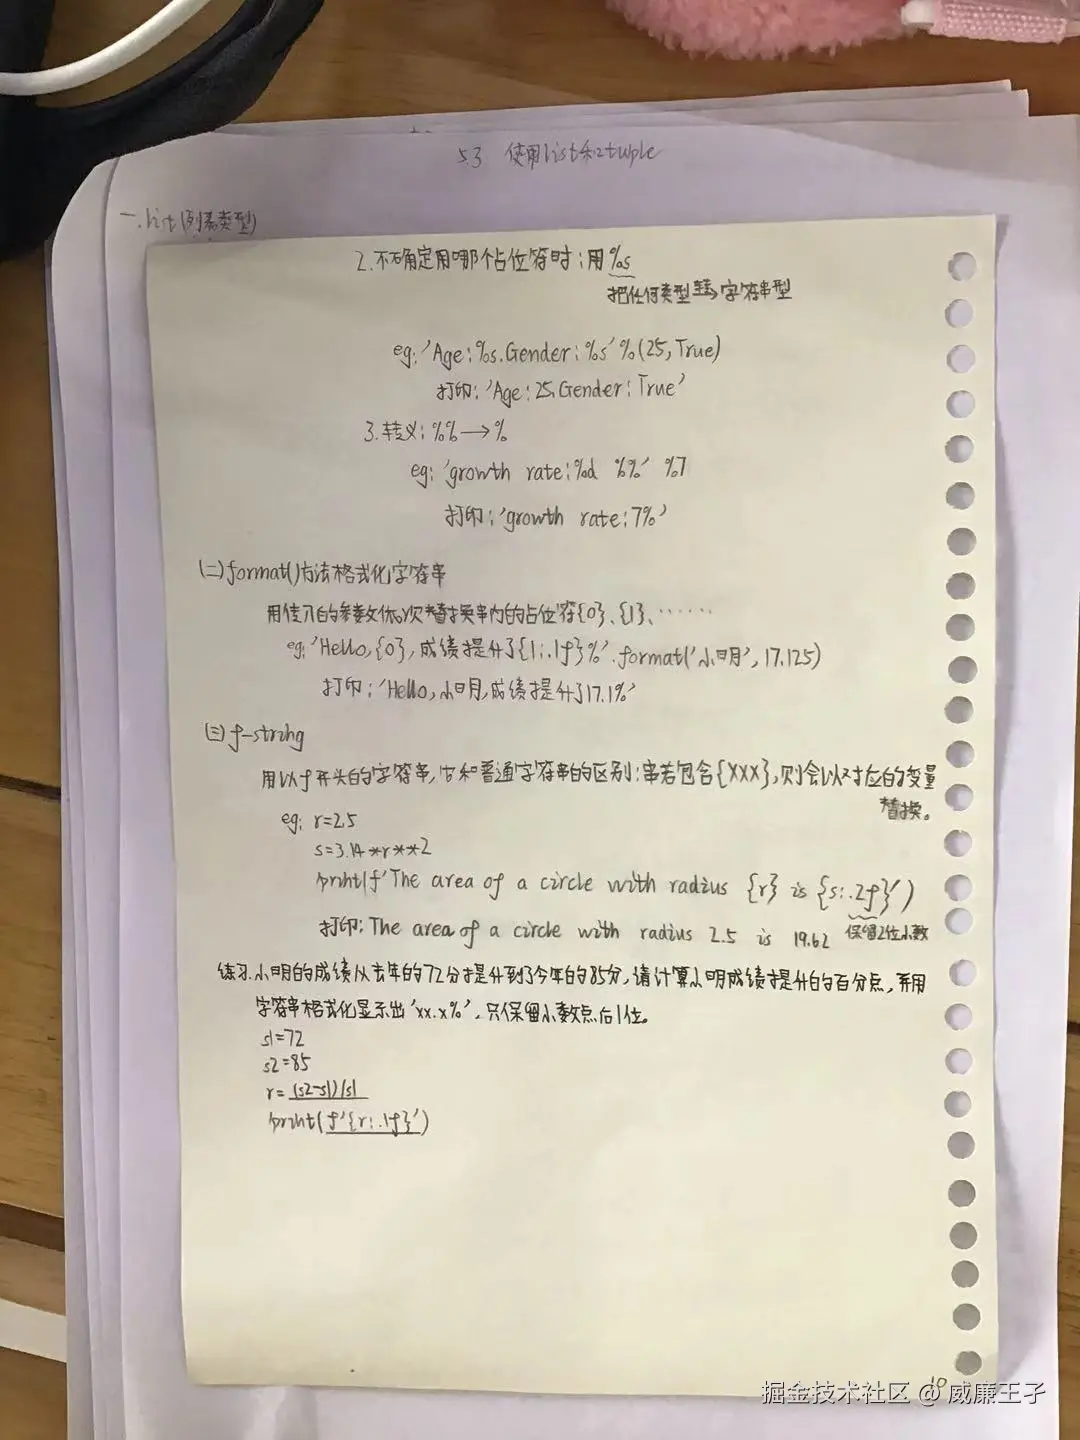 5.3 使用list和tuple
一.list(列表类型)
2.不确定用哪个占位符时:用%s
把任何类型转→字符串型
eg:'Age:%s.Gender:%s'%(25,True)
打印:'Age:25.Gender:True'
3.转义:%%→%
eg:'growth rate:%d %%' %7
打印:'growth rate:7%'
(二)format()方法格式化字符串
用传入的参数依次替换串内的占位符{0}、{1}、……
eg:'Hello,{0},成绩提升了{1:.1f}%'.format('小明',17.125)
打印:'Hello,小明,成绩提升了17.1%'
(三)f-string
用以f开头的字符串,它和普通字符串的区别:串若包含{XXX},则会以对应的变量
替换。
eg: r=2.5
s=3.14*r**2
print(f'The area of a circle with radius {r} is {s:.2f}')
打印:The area of a circle with radius 2.5 is 19.62 保留2位小数
练习.小明的成绩从去年的72分提升到了今年的85分,请计算小明成绩提升的百分点,并用
字符串格式化显示出'xx.x%',只保留小数点后1位。
s1=72
s2=85
r=(s2-s1)/s1
print(f'{r:.1f}')
10
掘金技术社区 @ 威廉王子